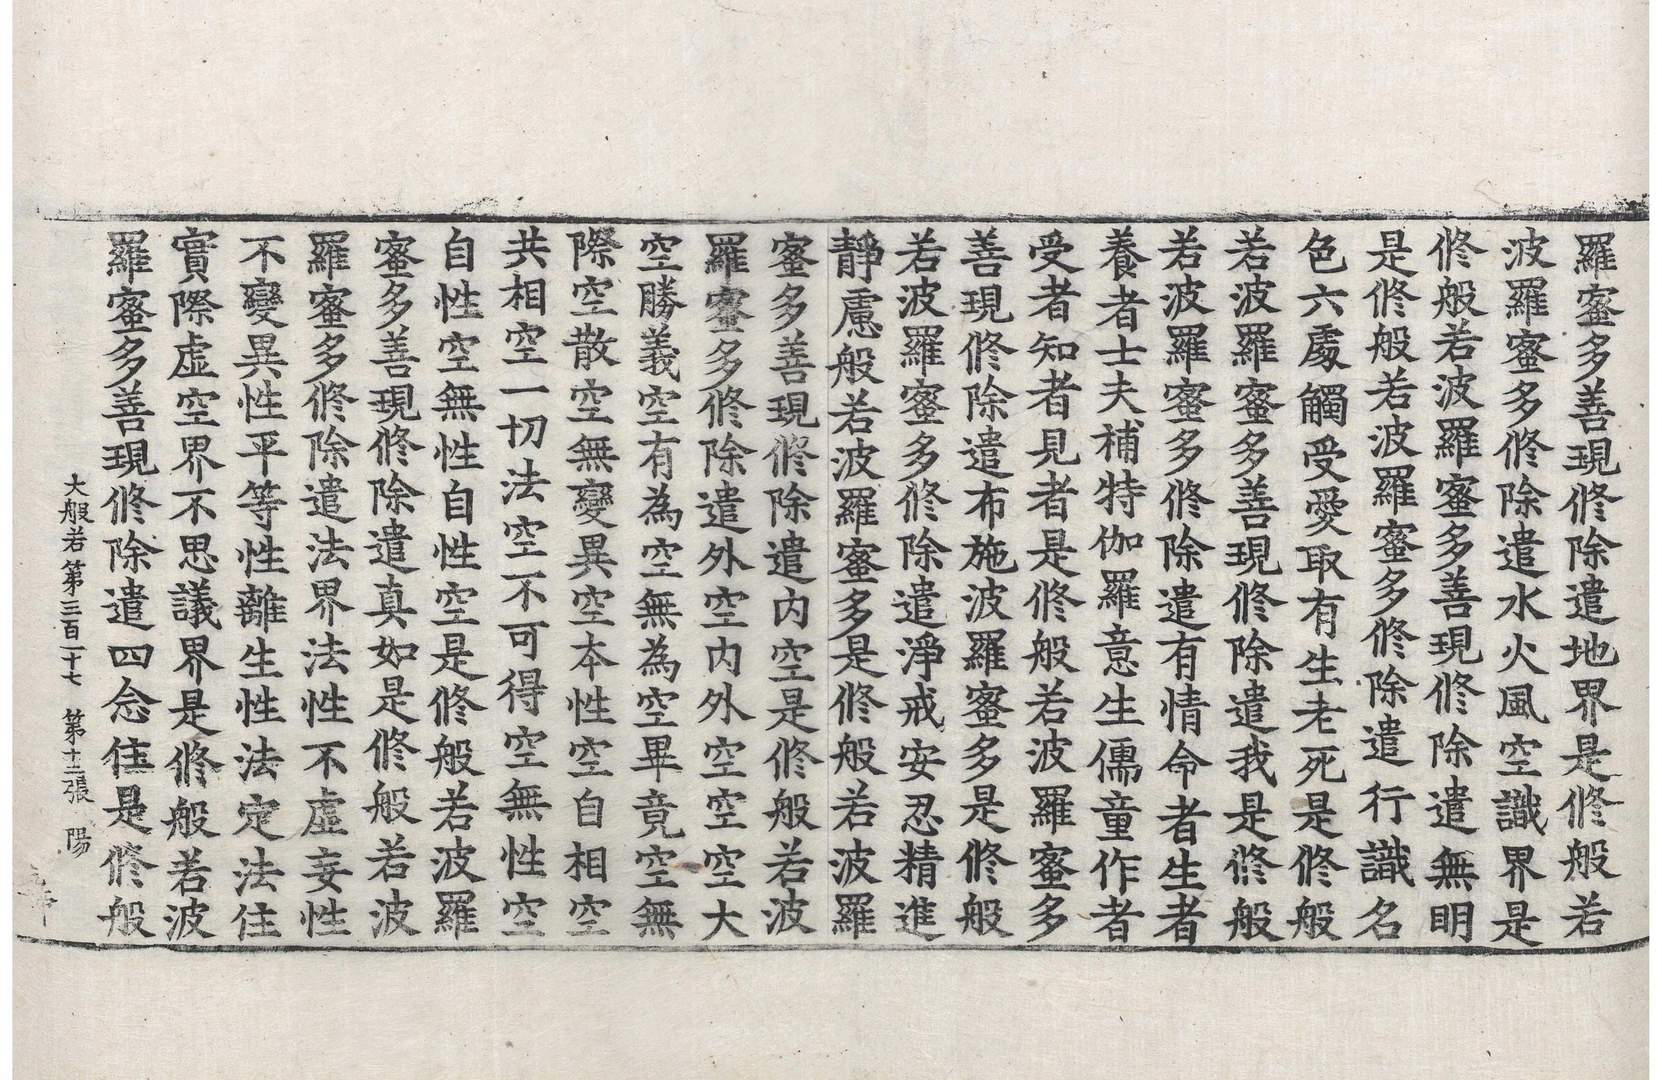 羅蜜多善現修除遣地界是修般若
波羅蜜多修除遣水火風空識界是
修般若波羅蜜多善現修除遣無明
是修般若波羅蜜多修除遣行識名
色六處觸受愛取有生老死是修般
若波羅蜜多善現修除遣我是修般
若波羅蜜多修除遣有情命者生者
養者士夫補特伽羅意生儒童作者
受者知者見者是修般若波羅蜜多
善現修除遣布施波羅蜜多是修般
若波羅蜜多修除遣淨戒安忍精進
靜慮般若波羅蜜多是修般若波羅
蜜多善現修除遣內空是修般若波
羅蜜多修除遣外空內外空空空大
空勝義空有為空無為空畢竟空無
際空散空無變異空本性空自相空
共相空一切法空不可得空無性空
自性空無性自性空是修般若波羅
蜜多善現修除遣真如是修般若波
羅蜜多修除遣法界法性不虛妄性
不變異性平等性離生性法定法住
實際虛空界不思議界是修般若波
羅蜜多善現修除遣四念住是修般
大般若第三百二十七 第十二張 陽